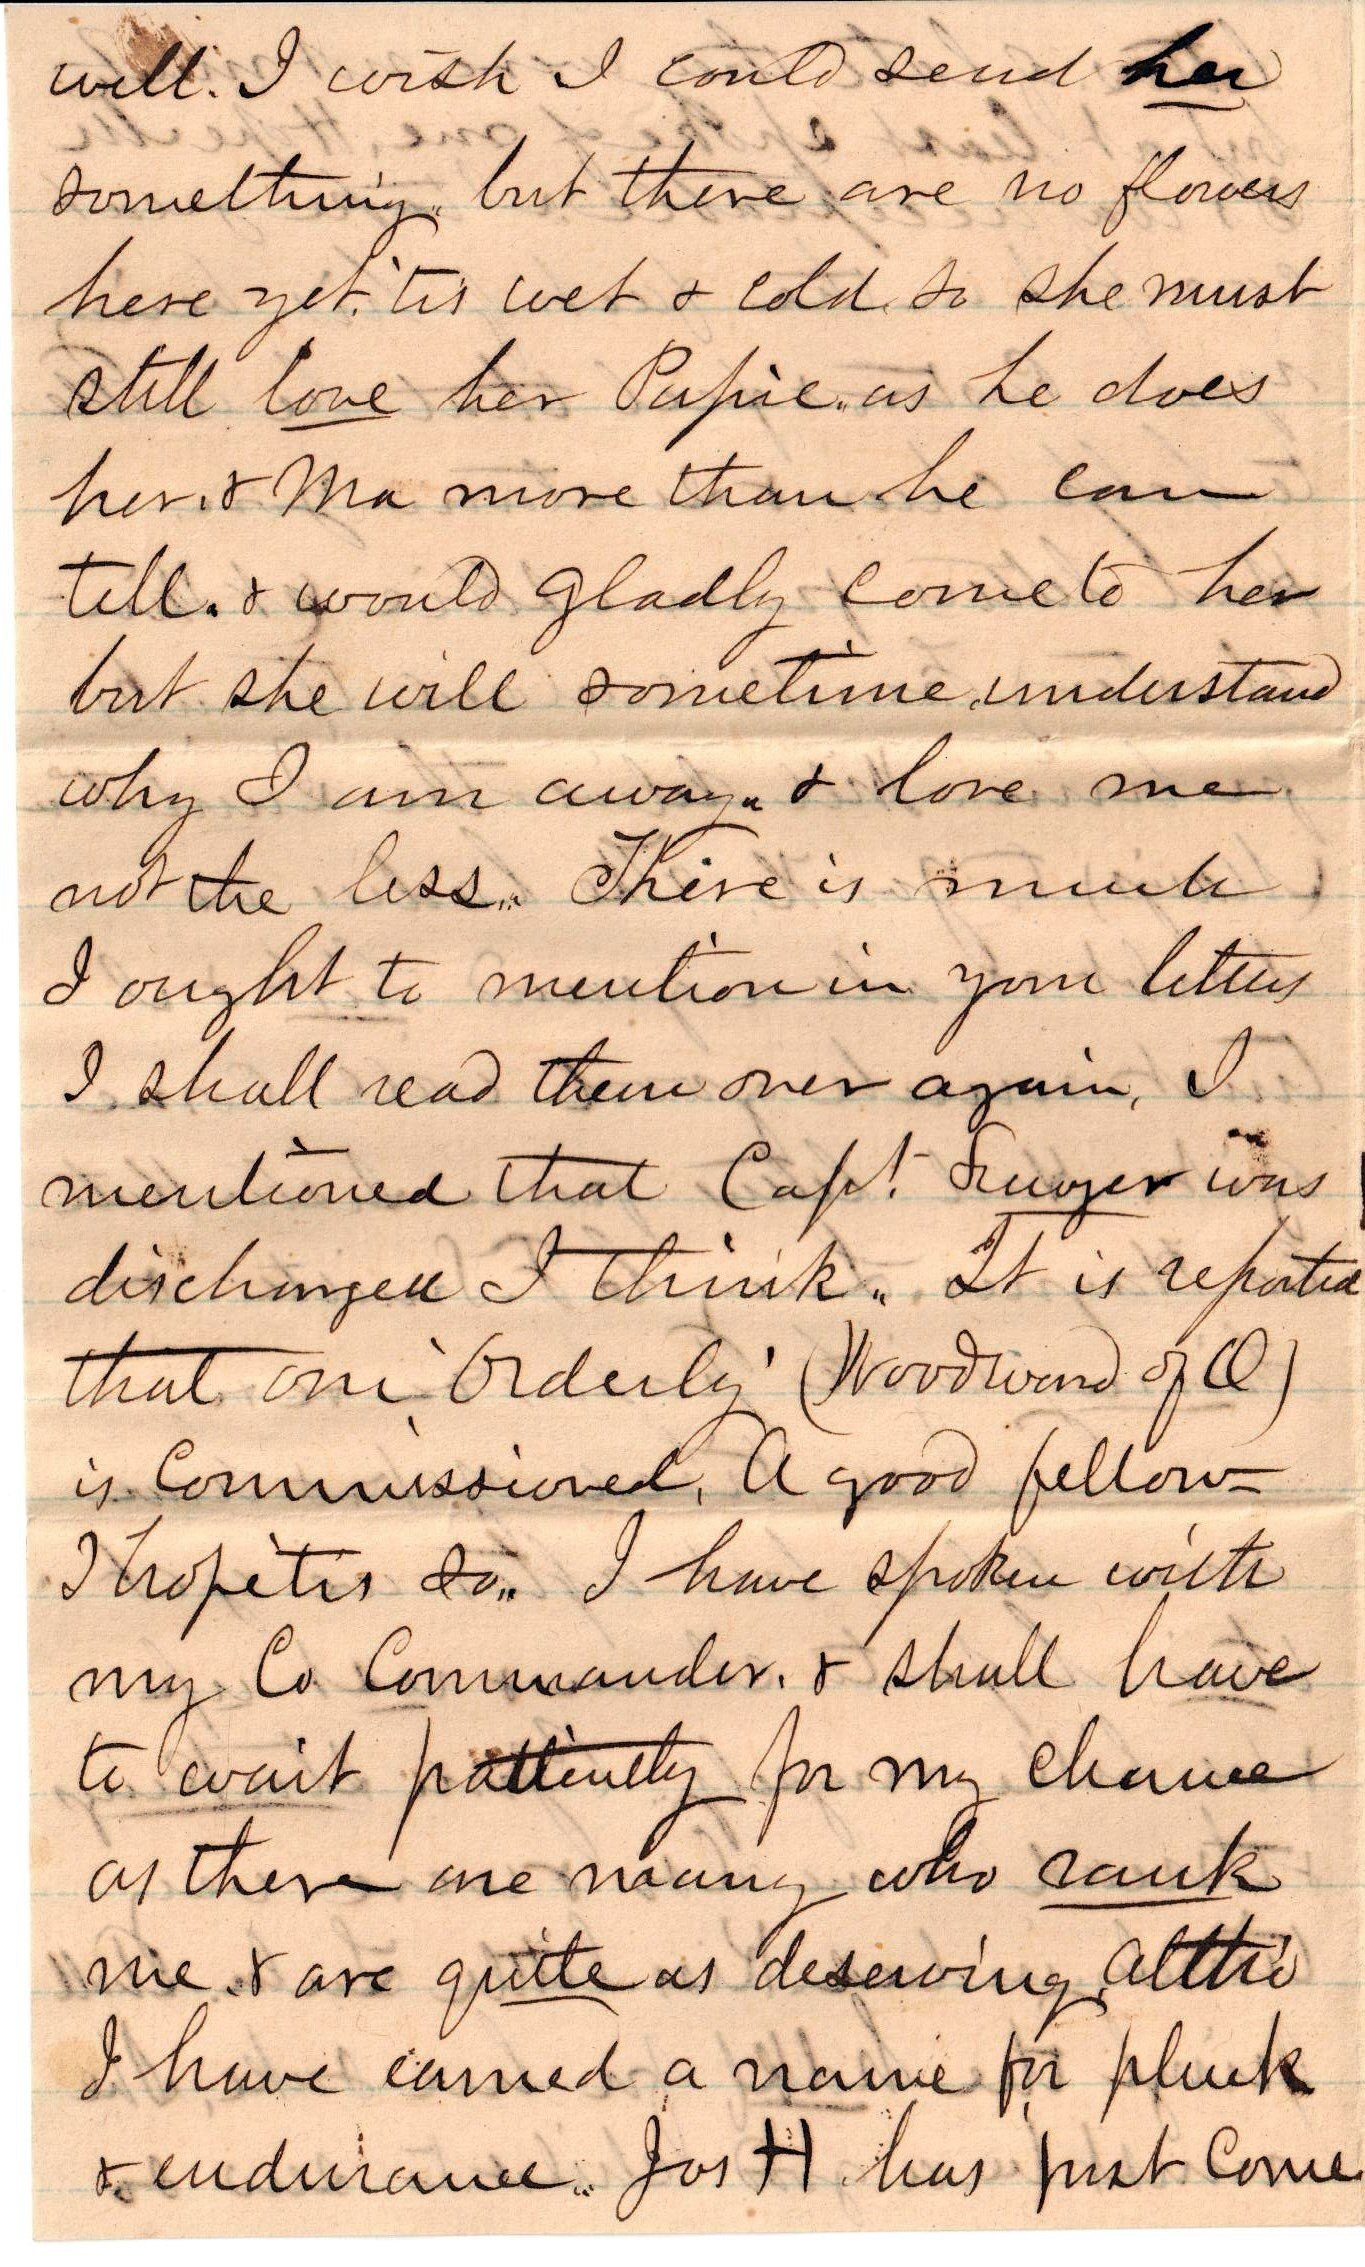 well. I wish I could send her
something,, but there are no flowers
here yet. 'tis wet & cold. so she must
still love her Papie,, as he does
her. & Ma more than he can
tell. & would gladly come to her
but she will sometime, understand
why I am away,, & love me
not the less,, There is much
I ought to mention in your letters
I shall read them over again, I
mentioned that Capt. was
discharged I think,, It is reported
that our 'Orderly' (Woodward of Q)
is Commissioned, A good fellow –
I hope 'tis so,, I have spoken with
my Co Commander. & shall have
to wait patiently for my chance
as there are many who rank
me. & are quite as deserving, altho'
I have earned a name for pluck
& endurance,, Jos H has just Come